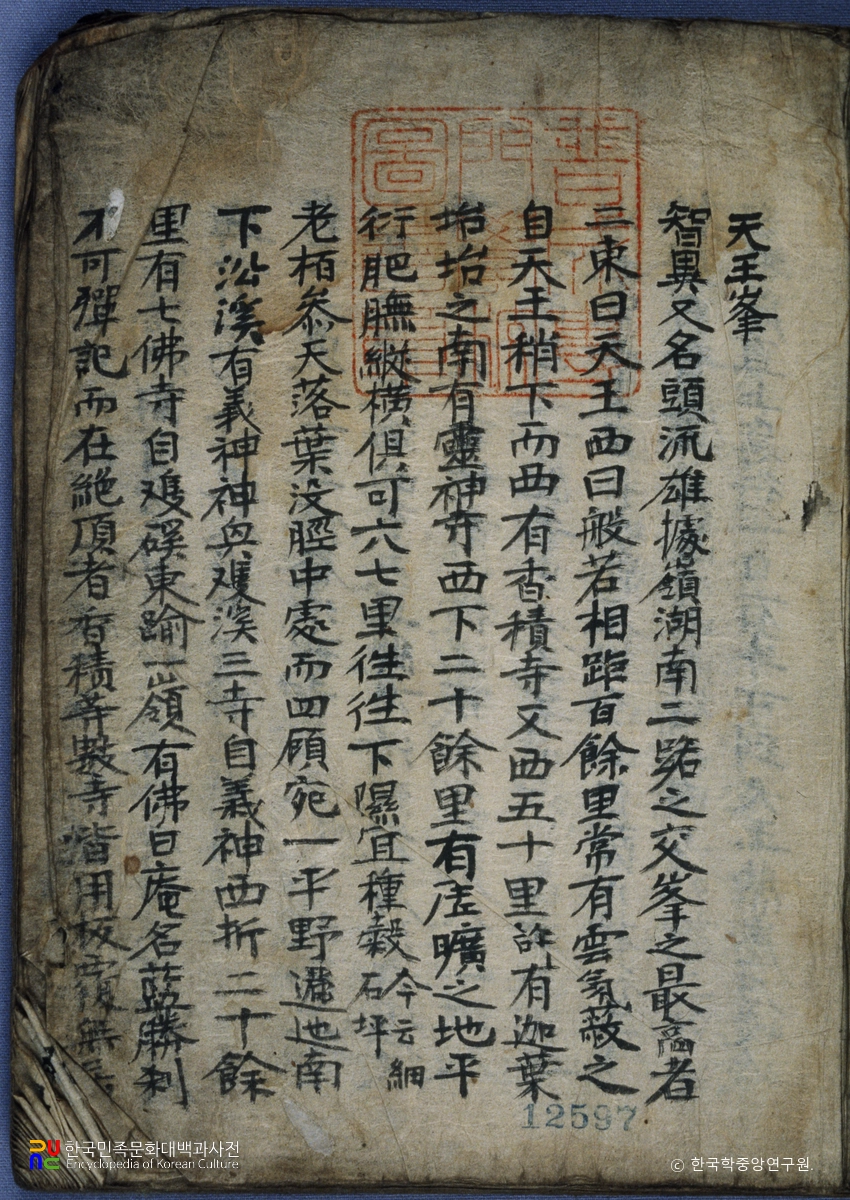 天王峯
智異又名頭流雄據嶺湖南二路之交峯之最高者
三東曰天王西曰般若相距百餘里常有雲氣蔽之
自天王稍下而西有香積寺又西五十里許有迦葉
坮坮之南有靈神寺西下二十餘里有虛曠之地平
衍肥膴縱橫俱可六七里徃徃下隰宜種穀今云細石坪
老栢叅天落葉沒脛中處而四顧宛一平野邐迤南
下沿溪有義神神㒷䨇溪三寺自義神西折二十餘
里有七佛寺自䨇磎東踰一嶺有佛日庵名藍勝刹
不可殫記而在絶頂者香積等數寺皆用板覆無
12597
한국민족문화대백과사전
Encyclopedia of Korean Culture
© 한국학중앙연구원.